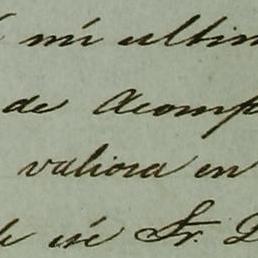 mi ultim
de Acomp
valiosa en
de ese Sr. D